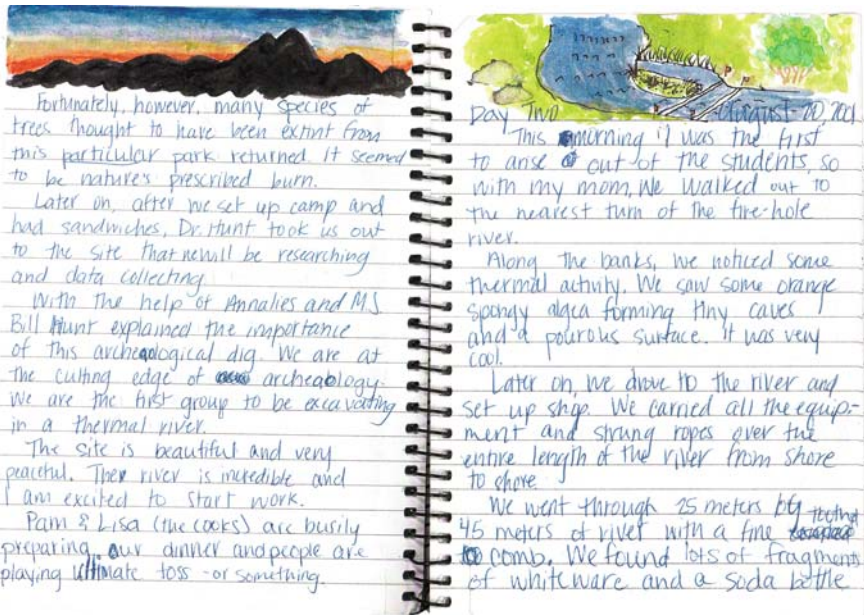 Fortunately, however, many species of
trees thought to have been extint from
this particular park returned. It seemed
to be nature's prescribed burn.
Later on, after we set up camp and
had sandwiches, Dr. Hunt took us out
to the site that we will be researching
and data collecting
With the help of Annalies and MJ
Bill Hunt explained the importance
of this archeaological dig. We are at
the cutting edge of archeaology.
We are the first group to be excavating
in a thermal river.
The site is beautiful and very
peaceful. The river is incredible and
I am excited to start work.
Pam & Lisa (the cooks) are busily
preparing our dinner and people are
playing ultimate toss - or something.
Day Two August 20, 2001
This morning I was the first
to arise out of the students, so
with my mom, We walked out to
the nearest turn of the fire-hole
river.
Along the banks, we noticed some
thermal activity. We saw some orange
spongy algea forming tiny caves
and a pourous surface. It was very
cool.
Later on, we drove to the river and
set up shop. We carried all the equip-
ment and strung ropes over the
entire length of the river from shore
to shore.
We went through 25 meters by
45 meters of river with a fine toothed
comb. We found lots of fragments
of whiteware and a soda bottle